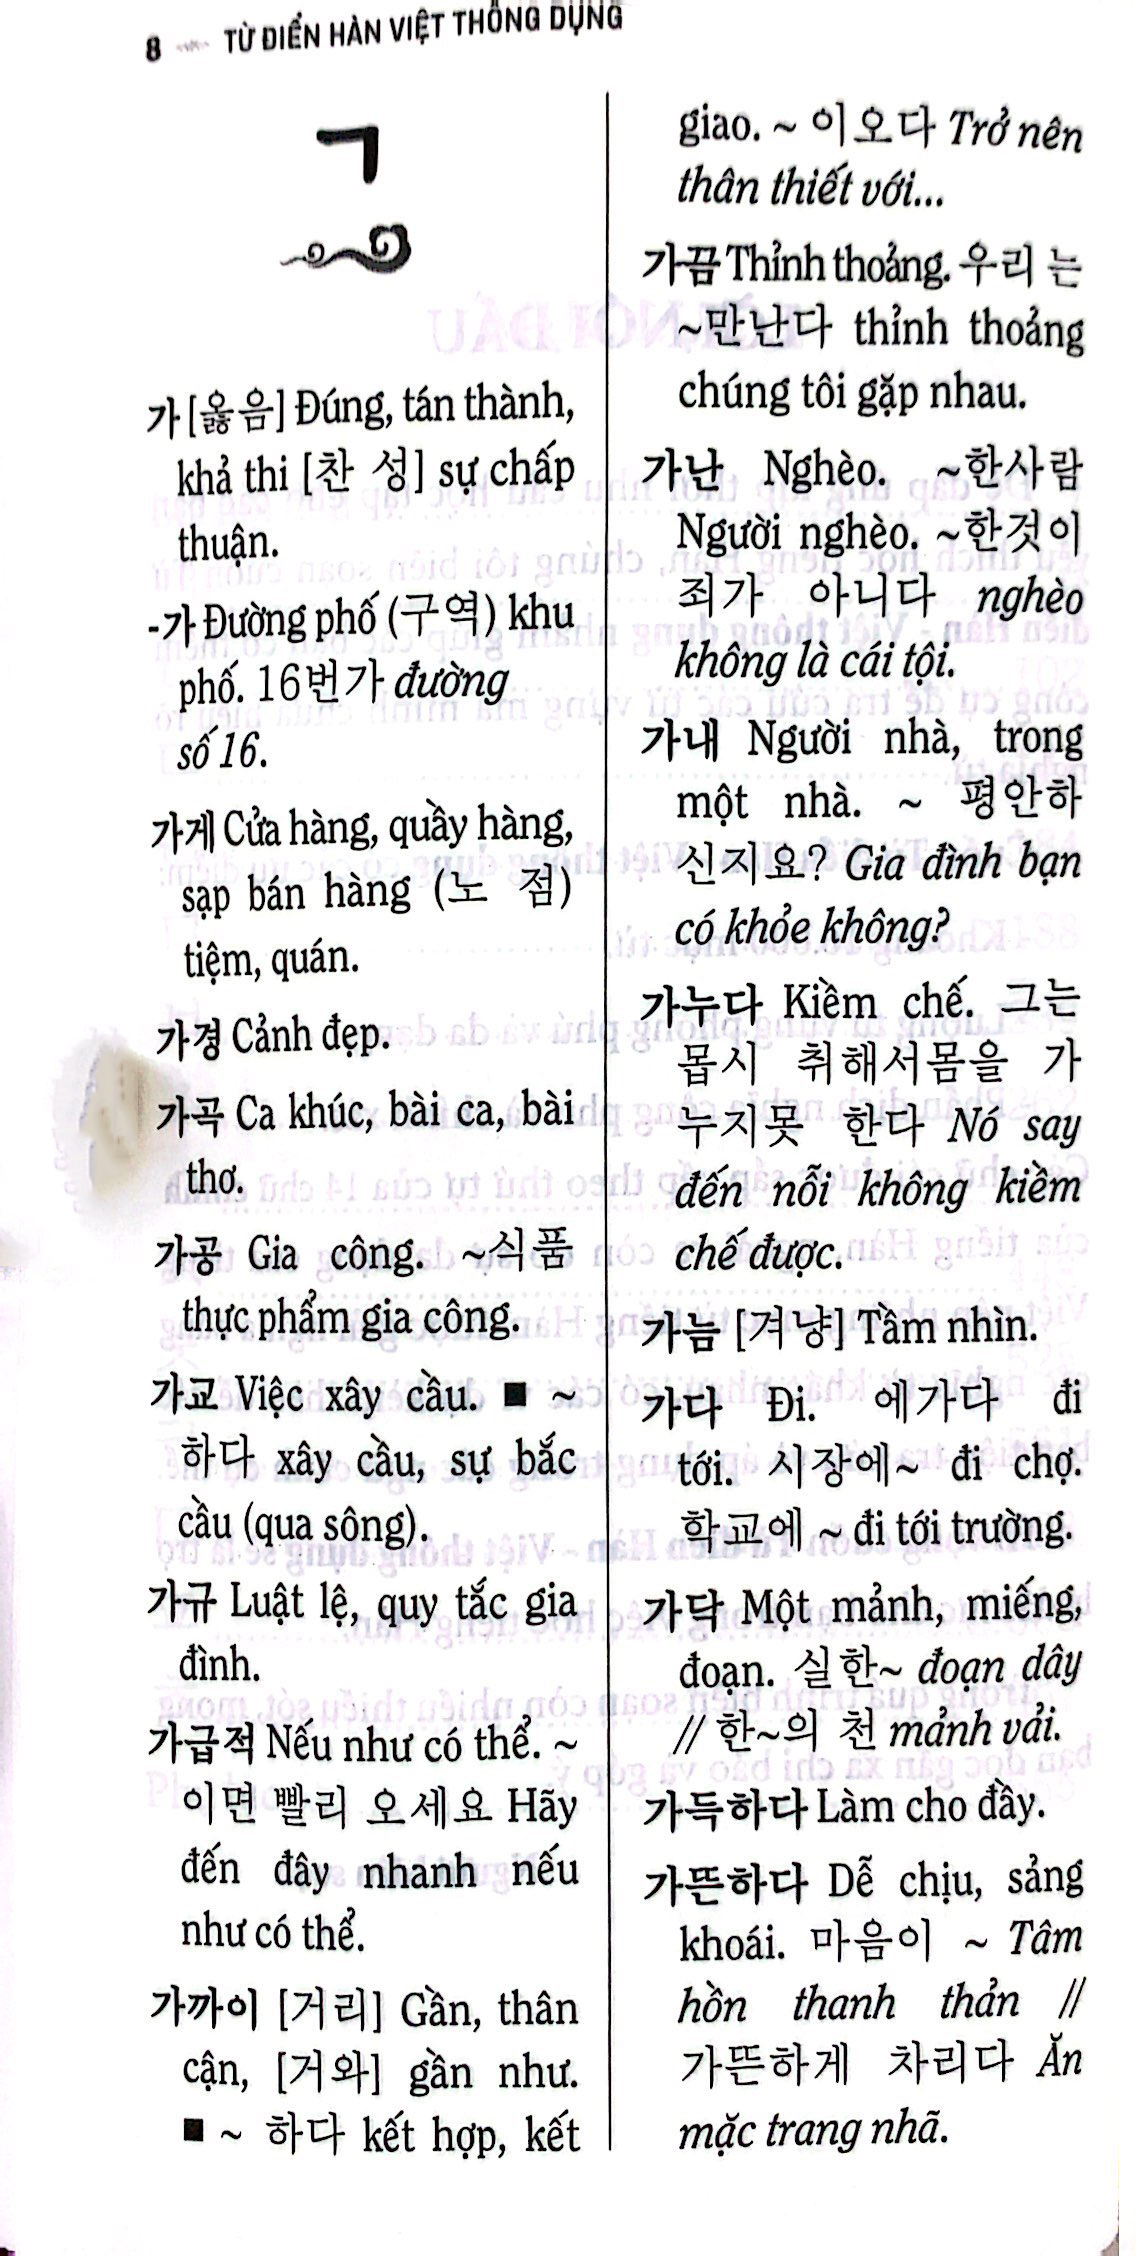 8 TỪ ĐIỂN HÀN VIỆT THÔNG DỤNG
ㄱ
가 [옳음] Đúng, tán thành,
khả thi [찬 성] sự chấp
thuận.
-가 Đường phố (구역) khu
phố. 16번가 đường
số 16.
가게 Cửa hàng, quầy hàng,
sạp bán hàng (노 점)
tiệm, quán.
가경 Cảnh đẹp.
가곡 Ca khúc, bài ca, bài
thơ.
가공 Gia công. ~식품
thực phẩm gia công.
가교 Việc xây cầu. ■ ~
하다 xây cầu, sự bắc
cầu (qua sông).
가규 Luật lệ, quy tắc gia
đình.
가급적 Nếu như có thể. ~
이면 빨리 오세요 Hãy
đến đây nhanh nếu
như có thể.
가까이 [거리] Gần, thân
cận, [거와] gần như.
■ ~ 하다 kết hợp, kết
giao. ~ 이오다 Trở nên
thân thiết với...
가끔 Thỉnh thoảng. 우리 는
~만난다 thỉnh thoảng
chúng tôi gặp nhau.
가난 Nghèo. ~한사람
Người nghèo. ~한것이
죄가 아니다 nghèo
không là cái tội.
가내 Người nhà, trong
một nhà. ~ 평안하
신지요? Gia đình bạn
có khỏe không?
가누다 Kiềm chế. 그는
몹시 취해서몸을 가
누지못 한다 Nó say
đến nỗi không kiềm
chế được.
가늠 [겨냥] Tầm nhìn.
가다 Đi. 에가다 đi
tới. 시장에~ đi chợ.
학교에 ~ đi tới trường.
가닥 Một mảnh, miếng,
đoạn. 실한~ đoạn dây
// 한~의 천 mảnh vải.
가득하다 Làm cho đầy.
가뜬하다 Dễ chịu, sảng
khoái. 마음이 ~ Tâm
hồn thanh thản //
가뜬하게 차리다 Ăn
mặc trang nhã.